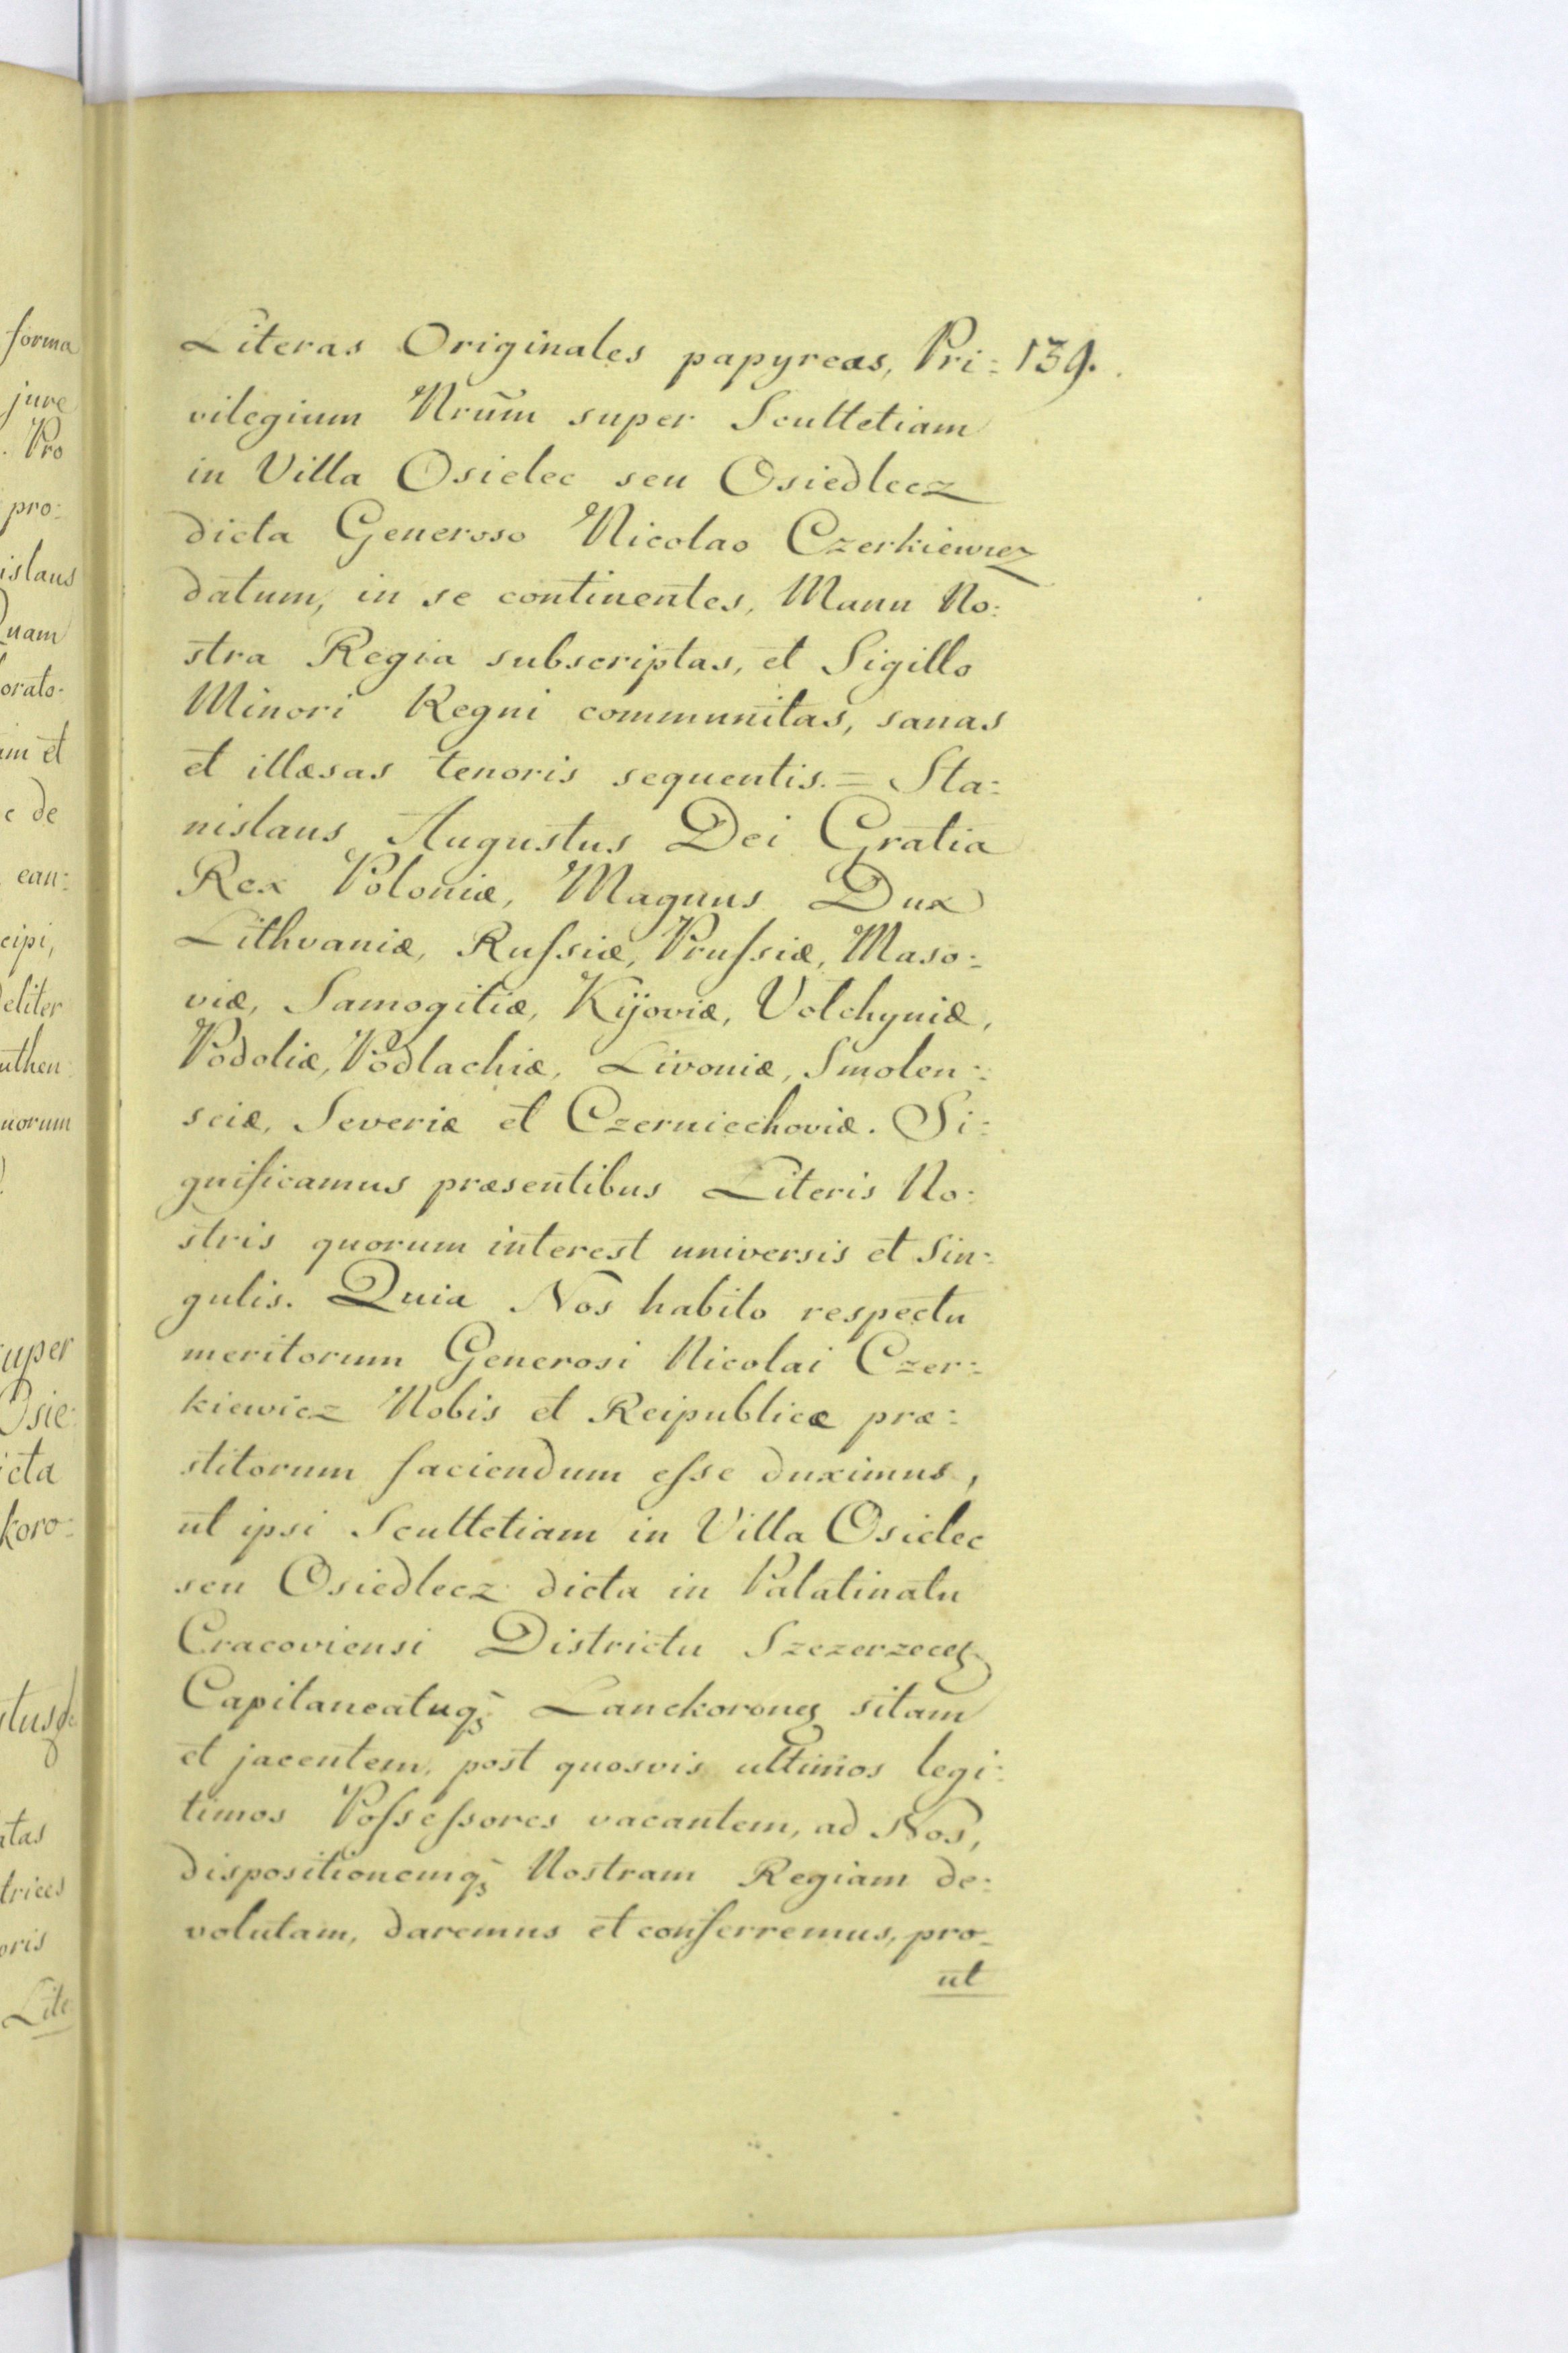 forma
jure
. Pro
pro:
islaus
Quam
orato:
am et
c de
ean:
cipi,
deliter
uthen:
uorum
super
Osie:
icta
koro:
atas
trices
oris
Lite
Literas Originales papyreas, Pri: 139.
vilegium Nrūm super Scultetiam
in Villa Osielec seu Osiedlecz
dicta Generoso Nicolao Czerkiewicz
datum, in se continentes, Manu No:
stra Regia subscriptas, et Sigillo
Minori Regni communitas, sanas
et illæsas tenoris sequentis. = Sta:
nislaus Augustus Dei Gratia
Rex Poloniæ, Magnus Dux
Lithvaniæ, Ruſsiæ, Pruſsiæ, Maso:
viæ, Samogitiæ, Kijoviæ, Volchyniæ,
Podoliæ, Podlachiæ, Livoniæ, Smolen:
sciæ, Severiæ et Czerniechoviæ. Si:
gnificamus præsentibus Literis No:
stris quorum interest universis et Sin:
gulis. Quia Nos habito respectu
meritorum Generosi Nicolai Czer:
kiewicz Nobis et Reipublicæ præ:
stitorum faciendum eſse duximus,
ut ipsi Scultetiam in Villa Osielec
seu Osiedlecz dicta in Palatinatu
Cracoviensi Districtu Szczerzeceꝫ
Capitaneatuqꝫ Lanckoroneꝫ sitam
et jacentem, post quosvis ultimos legi:
timos Poſseſsores vacantem, ad Nos,
dispositionemqꝫ Nostram Regiam de:
volutam, daremus et conferremus, pro_
ut